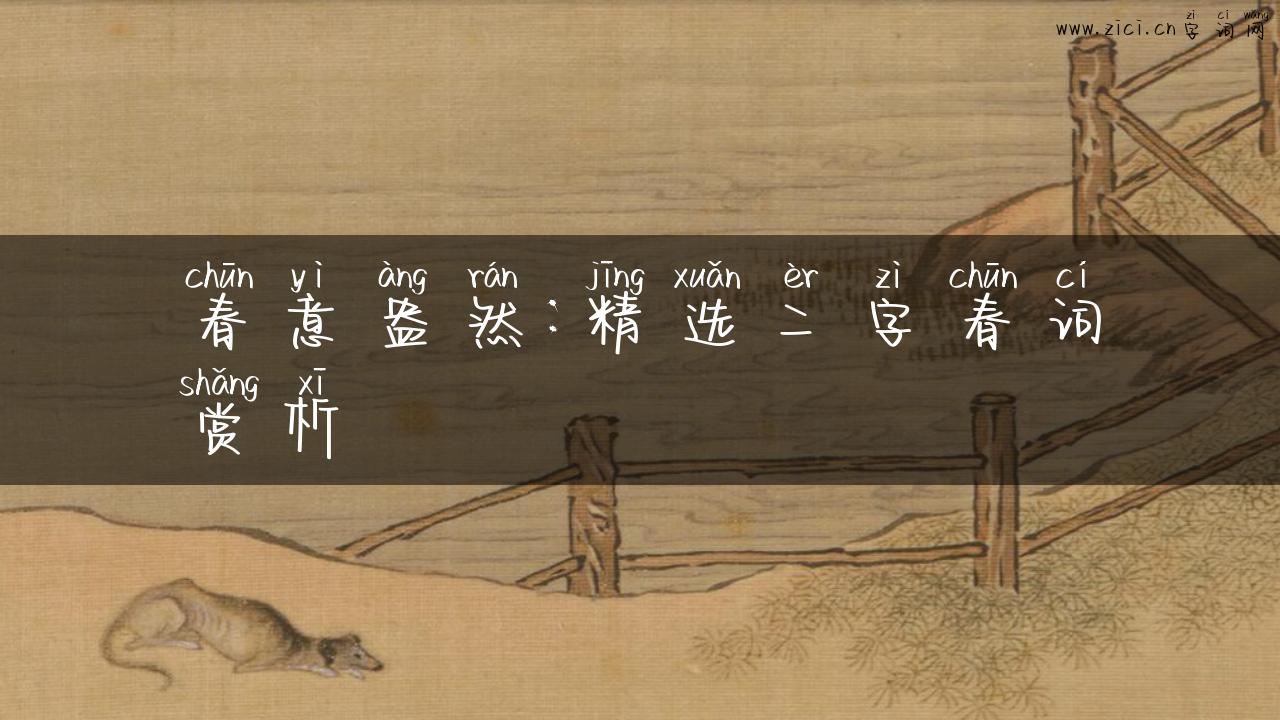 zì cí wǎng
www.zici.cn字词网
chūn yì àng rán jīng xuǎn èr zì chūn cí
春意盎然:精选二字春词
shǎng xī
赏析